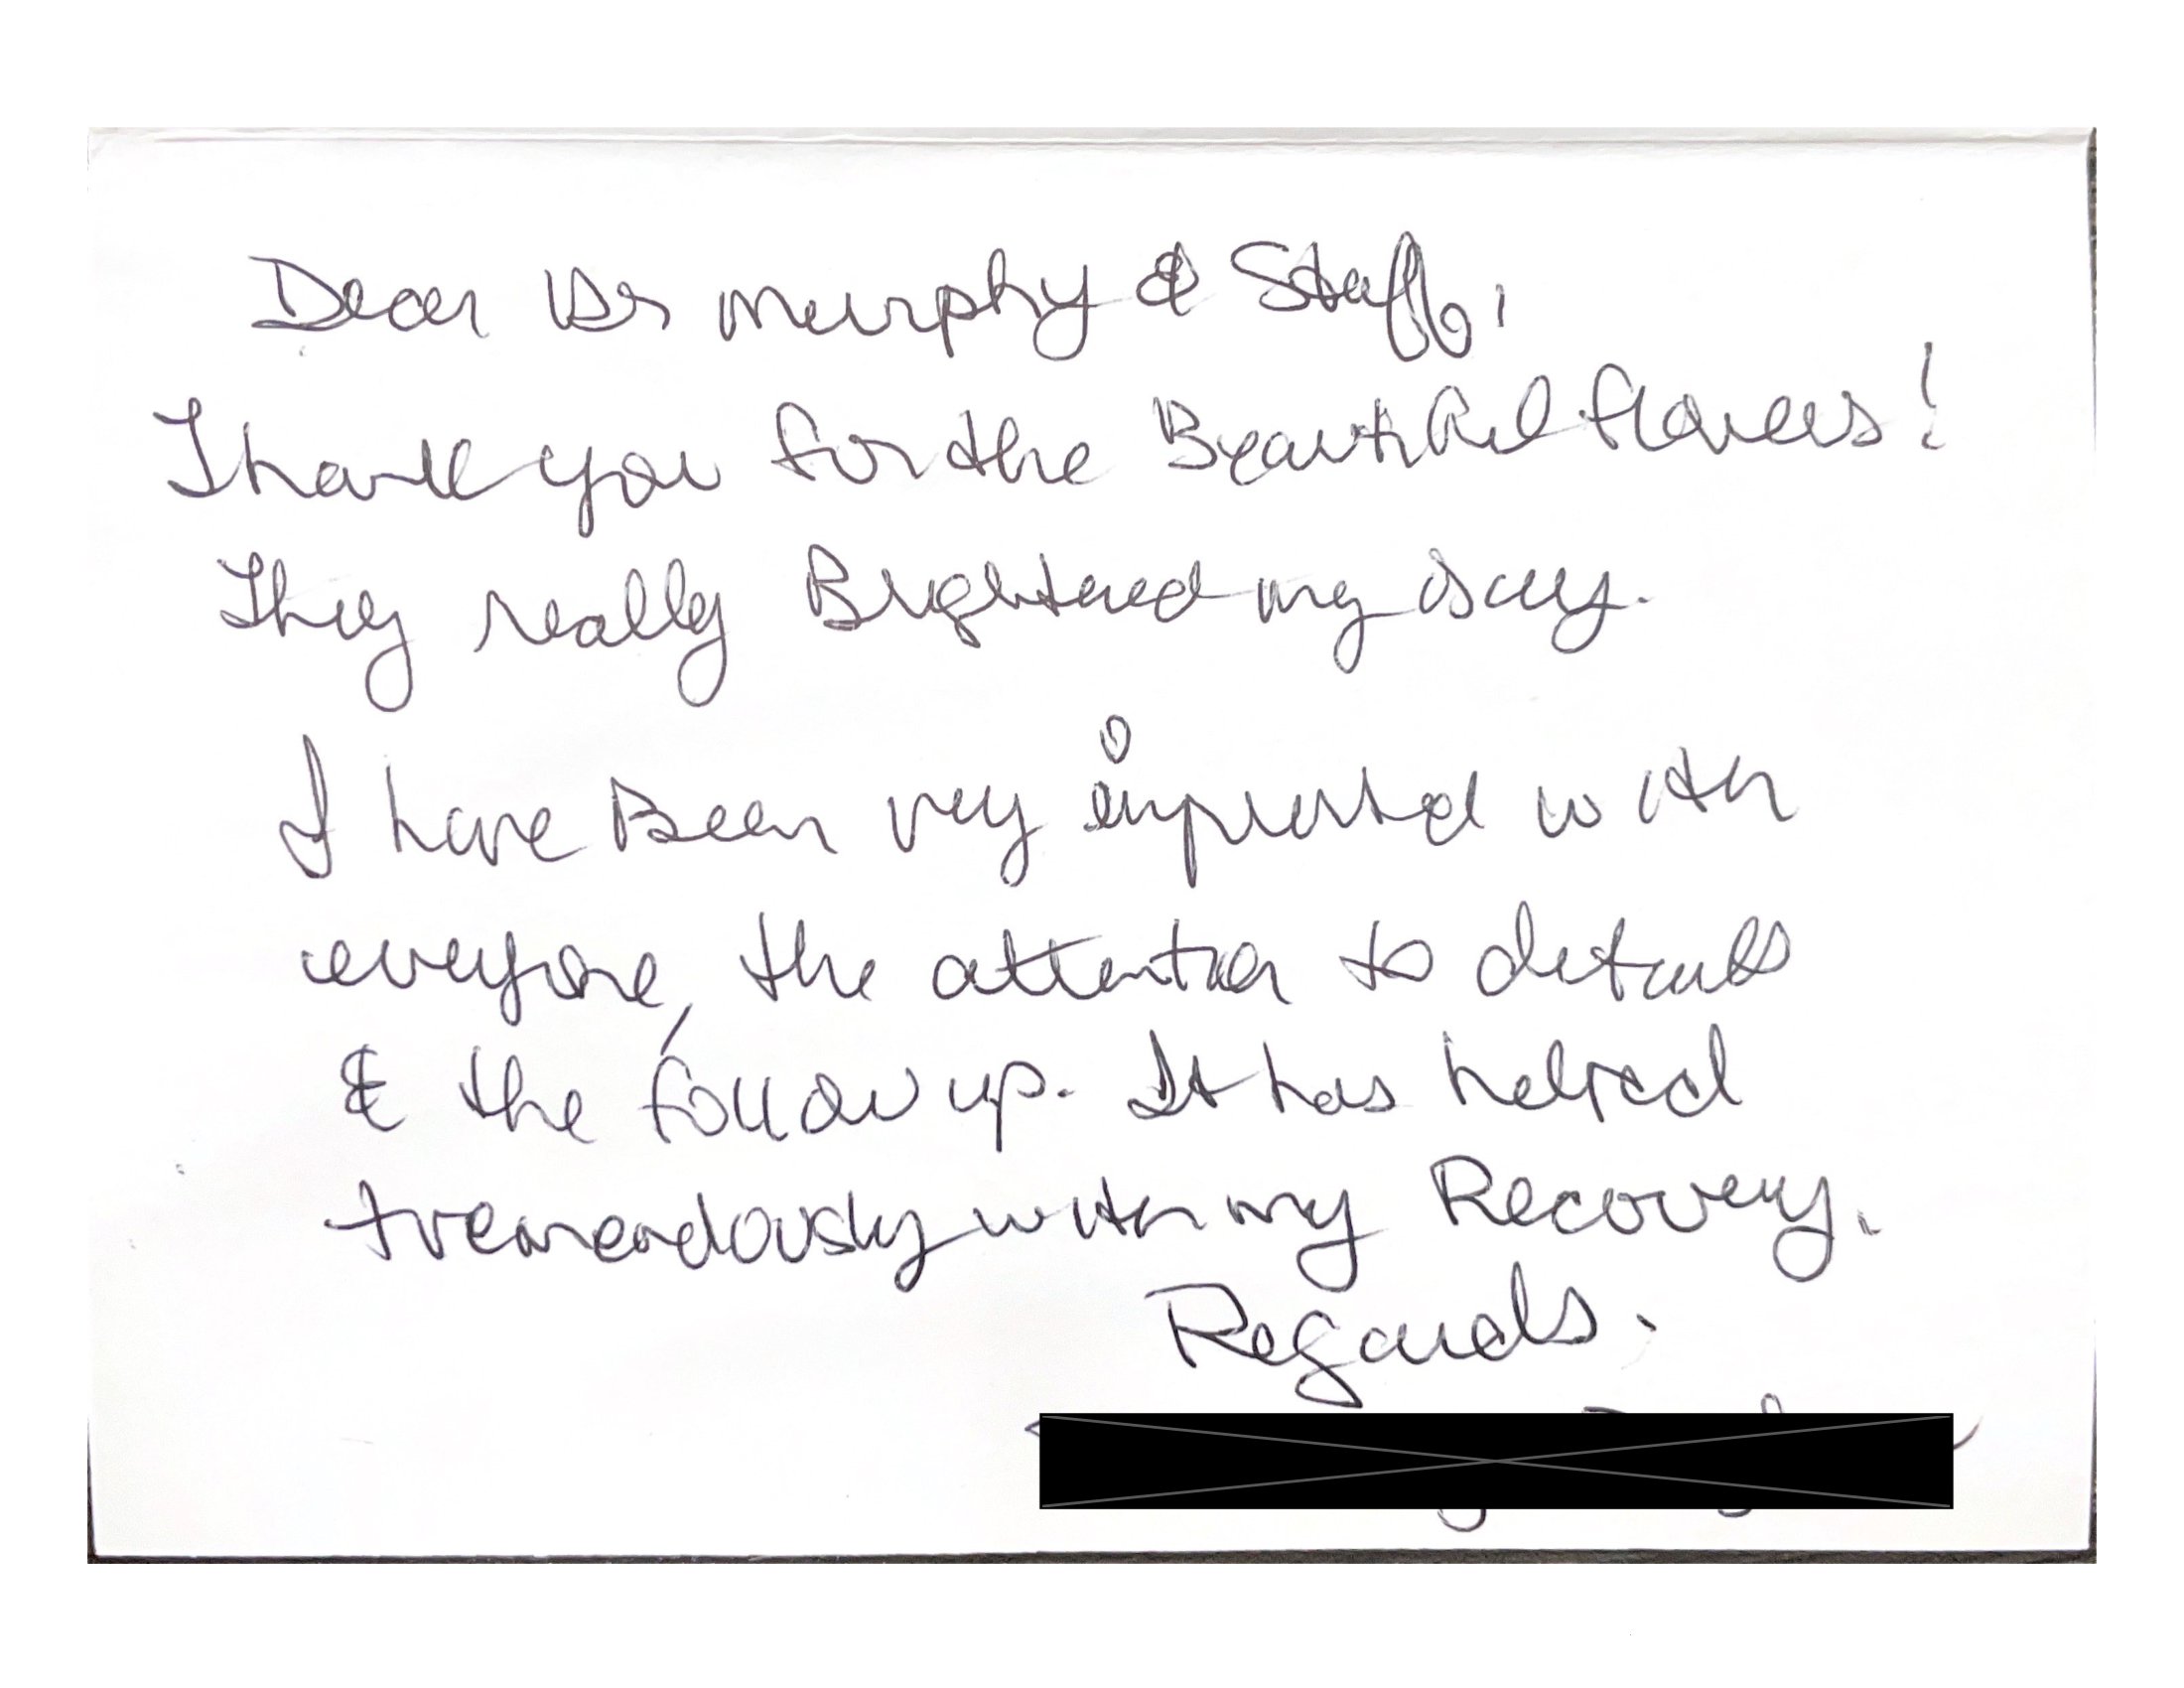 Dear Dr Murphy & Staff,
Thank you for the Beautiful flowers!
They really Brightened my day.
I have Been very impressed with
everyone, the attention to details
& the follow up. It has helped
tremendously with my Recovery.
Regards,